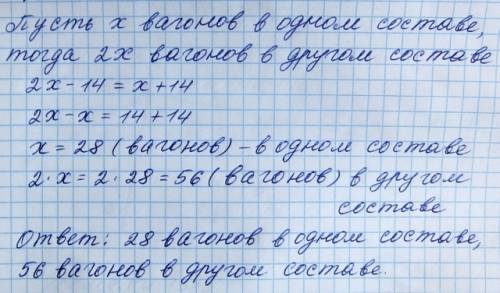 Пусть x вагонов в одном составе,
тогда 2x вагонов в другом составе
2x - 14 = x + 14
2x - x = 14 + 14
x = 28 (вагонов) - в одном составе
2 · x = 2 · 28 = 56 (вагонов) в другом
составе
Ответ: 28 вагонов в одном составе,
56 вагонов в другом составе.